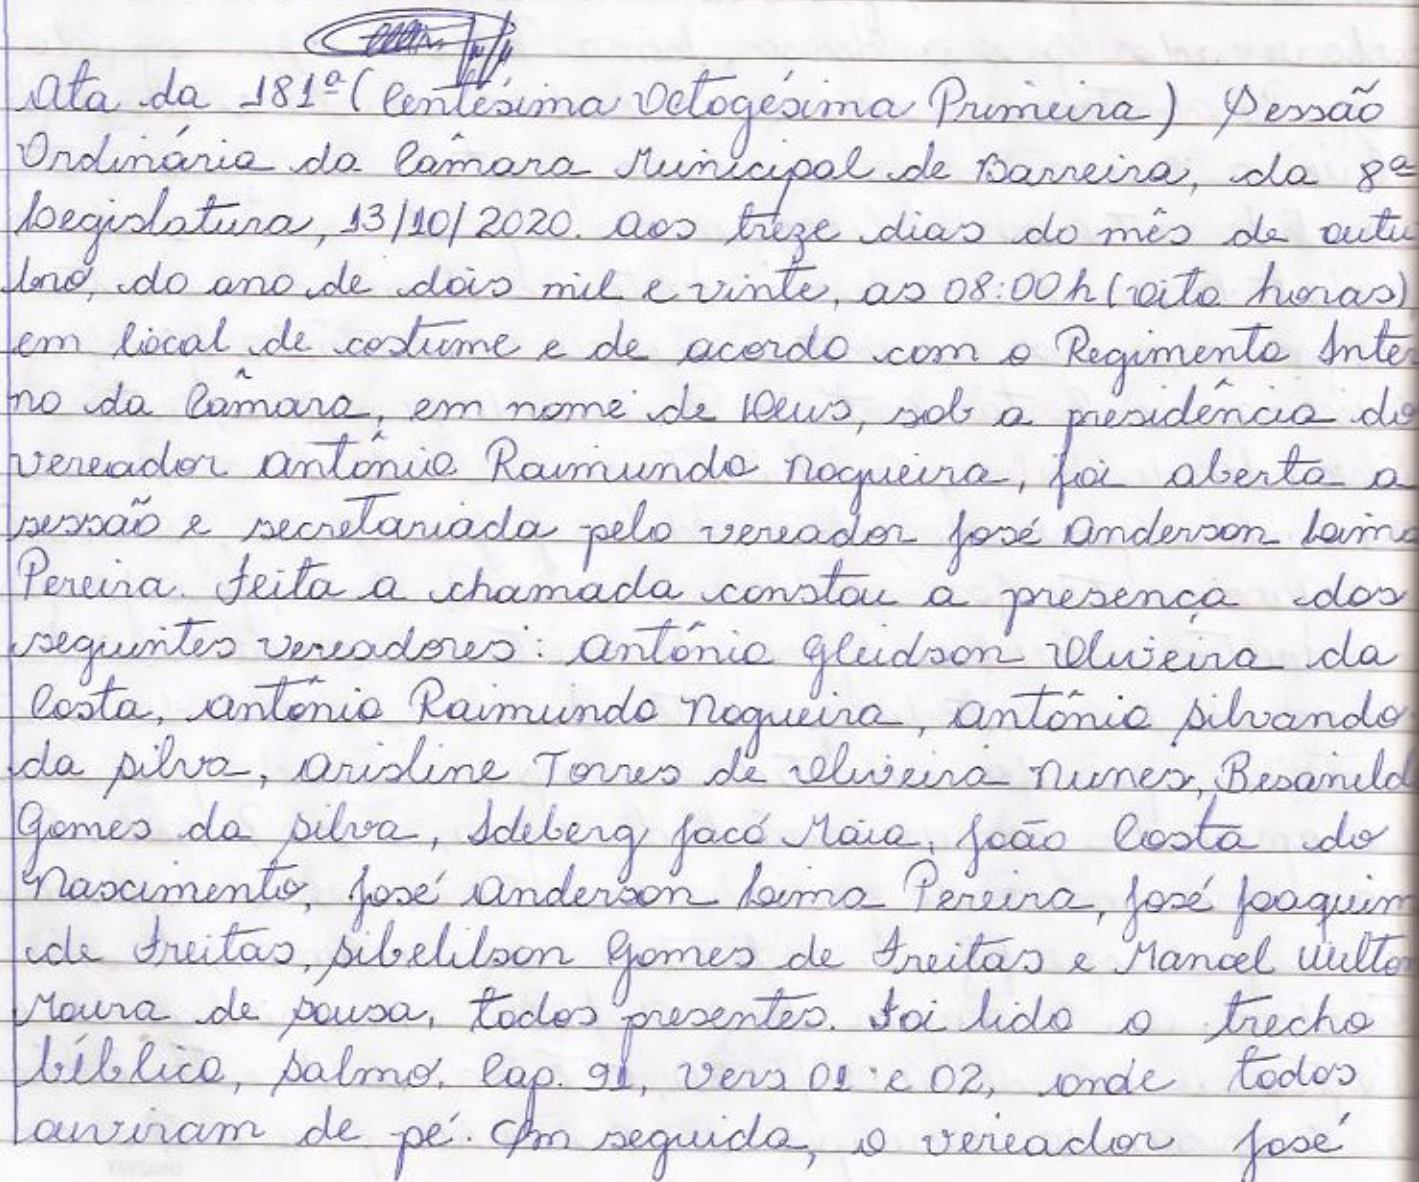 Ata da 181ª (Centésima Octogésima Primeira) Sessão
Ordinária da Câmara Municipal de Barreira, da 8ª
Legislatura, 13/10/2020. Aos treze dias do mês de outu
bro, do ano de dois mil e vinte, as 08:00h (oito horas)
em local de costume e de acordo com o Regimento Inter
no da Câmara, em nome de Deus, sob a presidência do
vereador Antônio Raimundo Nogueira, foi aberta a
sessão e secretariada pelo vereador José Anderson Lima
Pereira. Feita a chamada constou a presença dos
seguintes vereadores: Antônio Gleidson Oliveira da
Costa, Antônio Raimundo Nogueira, Antônio Silvando
da Silva, Arisline Torres de Oliveira Nunes, Besanild
Gomes da Silva, Ideberg Jacó Maia, João Costa do
Nascimento, José Anderson Lima Pereira, José Joaquim
de Freitas, Sibelilson Gomes de Freitas e Manoel Wilton
Moura de Sousa, todos presentes. Foi lido o trecho
bíblico, Salmo, Cap. 91, vers 01 e 02, onde todos
ouviram de pé. Em seguida, o vereador José